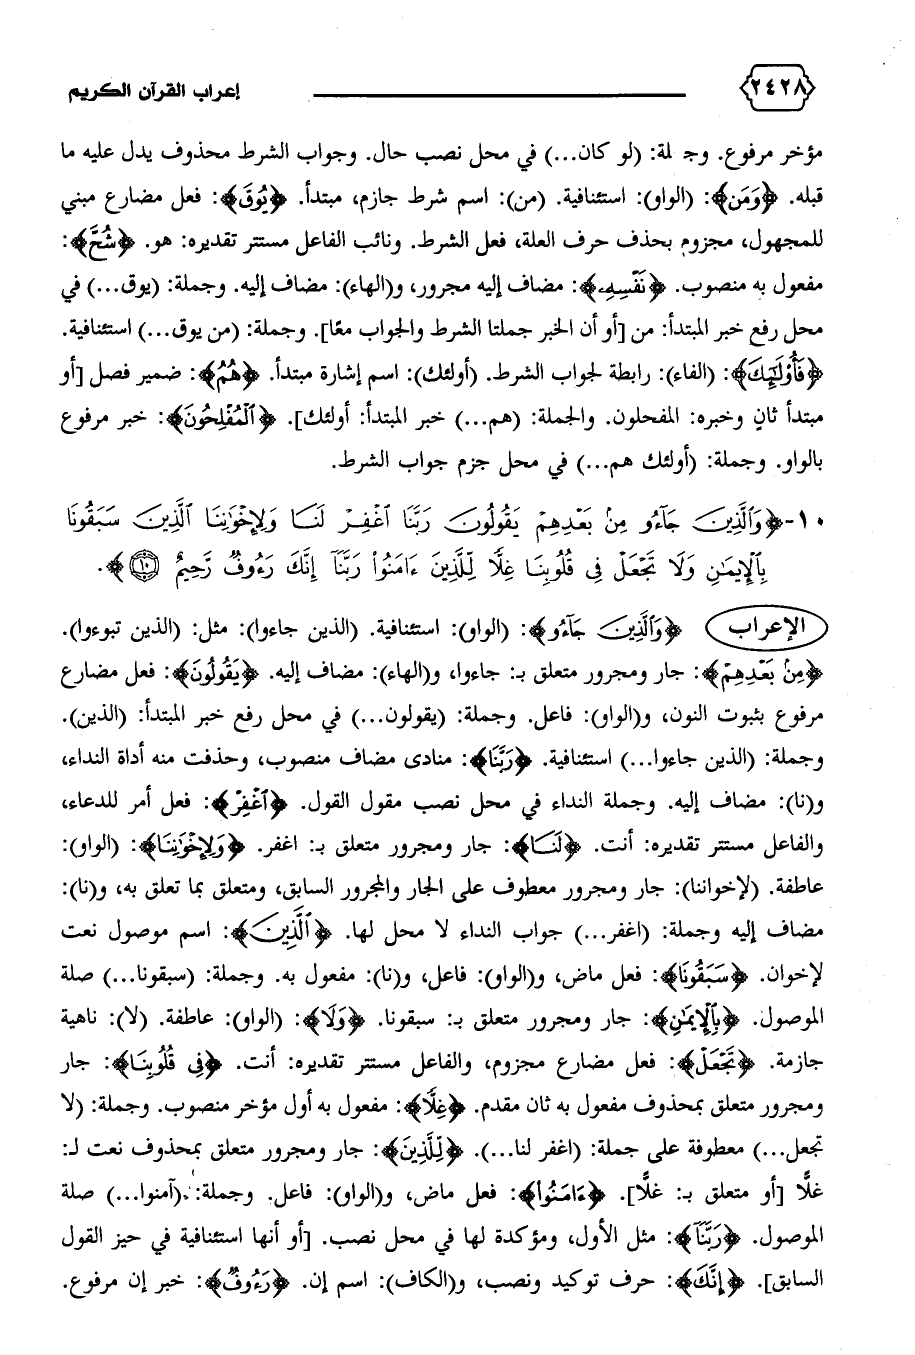 ٢٤٢٨ إعراب القرآن الكريم
مؤخر مرفوع. وجملة: (لو كان...) في محل نصب حال. وجواب الشرط محذوف يدل عليه ما
قبله. ﴿وَمَن﴾: (الواو): استئنافية. (من): اسم شرط جازم، مبتدأ. ﴿يُوقَ﴾: فعل مضارع مبني
للمجهول، مجزوم بحذف حرف العلة، فعل الشرط. ونائب الفاعل مستتر تقديره: هو. ﴿شُحَّ﴾:
مفعول به منصوب. ﴿نَفْسِهِۦ﴾: مضاف إليه مجرور، و(الهاء): مضاف إليه. وجملة: (يوق...) في
محل رفع خبر المبتدأ: من [أو أن الخبر جملتا الشرط والجواب معًا]. وجملة: (من يوق...) استئنافية.
﴿فَأُوْلَٰٓئِكَ﴾: (الفاء): رابطة لجواب الشرط. (أولئك): اسم إشارة مبتدأ. ﴿هُمُ﴾: ضمير فصل [أو
مبتدأ ثانٍ وخبره: المفحلون. والجملة: (هم...) خبر المبتدأ: أولئك]. ﴿ٱلْمُفْلِحُونَ﴾: خبر مرفوع
بالواو. وجملة: (أولئك هم...) في محل جزم جواب الشرط.
١٠- ﴿وَٱلَّذِينَ جَآءُو مِنۢ بَعْدِهِمْ يَقُولُونَ رَبَّنَا ٱغْفِرْ لَنَا وَلِإِخْوَٰنِنَا ٱلَّذِينَ سَبَقُونَا
بِٱلْإِيمَٰنِ وَلَا تَجْعَلْ فِى قُلُوبِنَا غِلًّا لِّلَّذِينَ ءَامَنُوا۟ رَبَّنَآ إِنَّكَ رَءُوفٌ رَّحِيمٌ ١٠﴾.
الإعراب ﴿وَٱلَّذِينَ جَآءُو﴾: (الواو): استئنافية. (الذين جاءوا): مثل: (الذين تبوءوا).
﴿مِنۢ بَعْدِهِمْ﴾: جار ومجرور متعلق بـ: جاءوا، و(الهاء): مضاف إليه. ﴿يَقُولُونَ﴾: فعل مضارع
مرفوع بثبوت النون، و(الواو): فاعل. وجملة: (يقولون...) في محل رفع خبر المبتدأ: (الذين).
وجملة: (الذين جاءوا...) استئنافية. ﴿رَبَّنَا﴾: منادى مضاف منصوب، وحذفت منه أداة النداء،
و(نا): مضاف إليه. وجملة النداء في محل نصب مقول القول. ﴿ٱغْفِرْ﴾: فعل أمر للدعاء،
والفاعل مستتر تقديره: أنت. ﴿لَنَا﴾: جار ومجرور متعلق بـ: اغفر. ﴿وَلِإِخْوَٰنِنَا﴾: (الواو):
عاطفة. (لإخواننا): جار ومجرور معطوف على الجار والمجرور السابق، ومتعلق بما تعلق به، و(نا):
مضاف إليه وجملة: (اغفر...) جواب النداء لا محل لها. ﴿ٱلَّذِينَ﴾: اسم موصول نعت
لإخوان. ﴿سَبَقُونَا﴾: فعل ماض، و(الواو): فاعل، و(نا): مفعول به. وجملة: (سبقونا...) صلة
الموصول. ﴿بِٱلْإِيمَٰنِ﴾: جار ومجرور متعلق بـ: سبقونا. ﴿وَلَا﴾: (الواو): عاطفة. (لا): ناهية
جازمة. ﴿تَجْعَلْ﴾: فعل مضارع مجزوم، والفاعل مستتر تقديره: أنت. ﴿فِى قُلُوبِنَا﴾: جار
ومجرور متعلق بمحذوف مفعول به ثان مقدم. ﴿غِلًّا﴾: مفعول به أول مؤخر منصوب. وجملة: (لا
تجعل...) معطوفة على جملة: (اغفر لنا...). ﴿لِّلَّذِينَ﴾: جار ومجرور متعلق بمحذوف نعت لـ:
غلًّا [أو متعلق بـ: غلًّا]. ﴿ءَامَنُوا۟﴾: فعل ماض، و(الواو): فاعل. وجملة: (آمنوا...) صلة
الموصول. ﴿رَبَّنَآ﴾: مثل الأول، ومؤكدة لها في محل نصب. [أو أنها استئنافية في حيز القول
السابق]. ﴿إِنَّكَ﴾: حرف توكيد ونصب، و(الكاف): اسم إن. ﴿رَءُوفٌ﴾: خبر إن مرفوع.